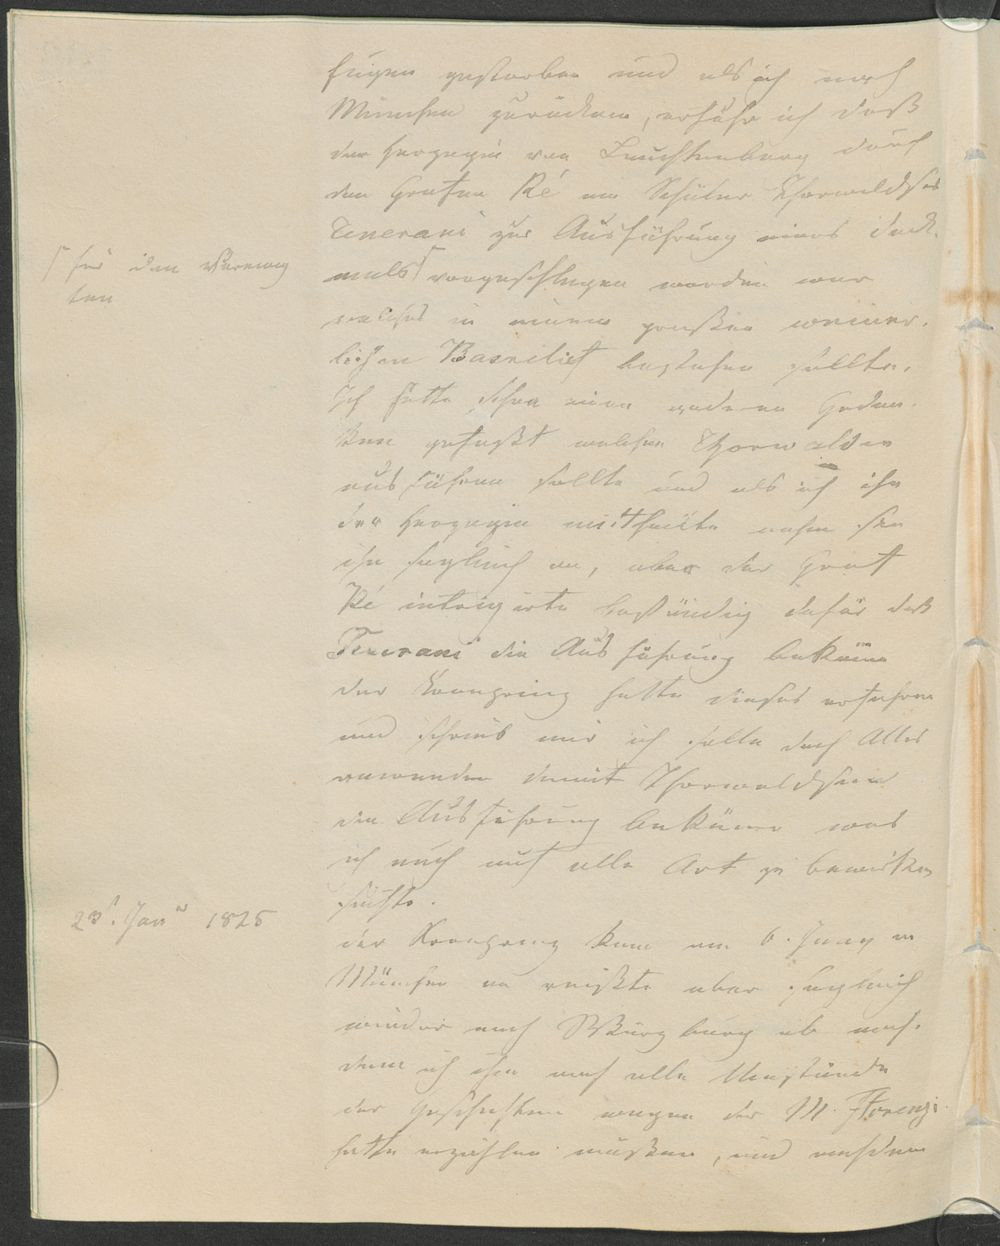 Eugen gestorben und als ich nach
München zurückkam, erfuhr ich daß
der Herzogin von Leuchtenberg durch
den Grafen Ré ein Schüler Thorwaldsens
Tenerani zur Ausführung eines Denk-
mals ⌈ vorgeschlagen worden war
⌈ für den Verewig
ten
welches in einem großen weiner-
lichen Basrelief bestehen sollte.
Ich hatte schon einen anderen Gedan-
ken gefaßt welchen Thorwaldsen
ausführen sollte und als ich ihn
der Herzogin mittheilte nahm sie
ihn sogleich an, aber der Graf
Ré intrigirte beständig dafür daß
Tenerani die Ausführung bekäme
der Kronprinz hatte dieses erfahren
und schrieb mir ich solle doch Alles
anwenden damit Thorwaldsen
die Ausführung bekäme was
ich auch auf alle Art zu bewirken
suchte.
23t. Janr 1825
der Kronprinz kam am 6. in
München an reißte aber sogleich
wieder nach Würzburg ab nach-
dem ich ihm noch alle Umstände
der Geschichten wegen der M. Florenzi
hatte erzählen müßen, und nachdem